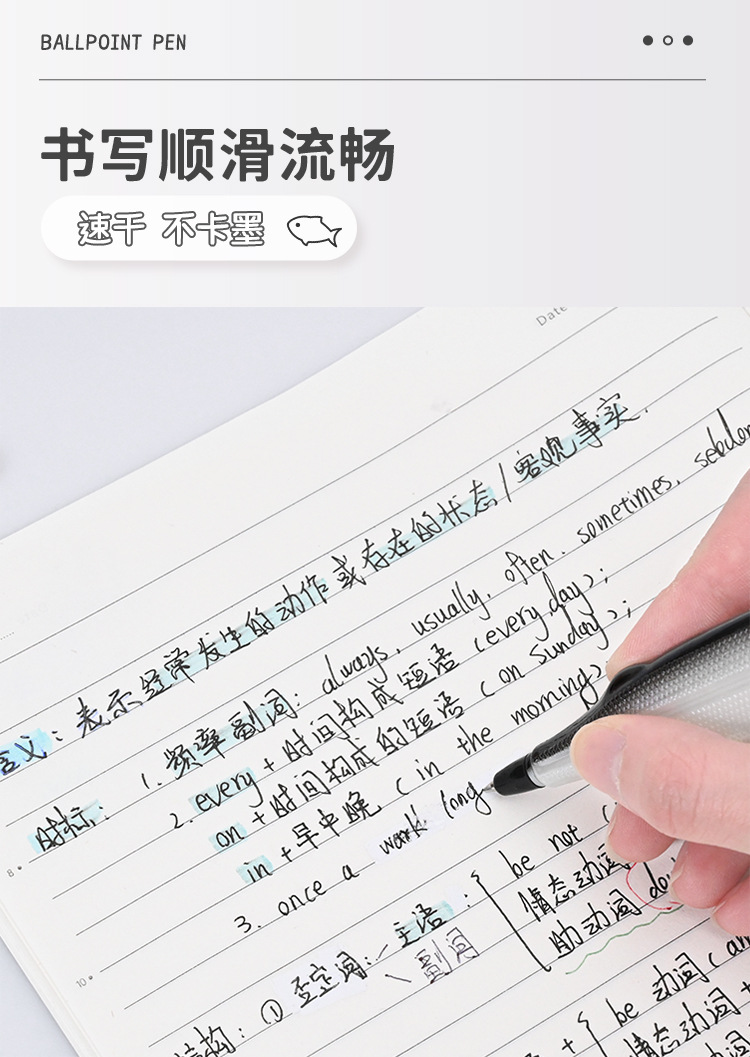 BALLPOINT PEN
书写顺滑流畅
速干 不卡墨
Date
含义：表示经常发生的动作或存在的状态/客观事实.
时标： 1. 频率副词：always, usually, often, sometimes,
2. every + 时间构成短语 (every day);
on + 时间构成的短语 (on Sunday);
in + 早中晚 (in the morning);
3. once a work long
8
主语：{ be not (
情态动词
助动词
10
结构：① 否定词：
副词
+ { be 动词 (
情态动词 +
助动词